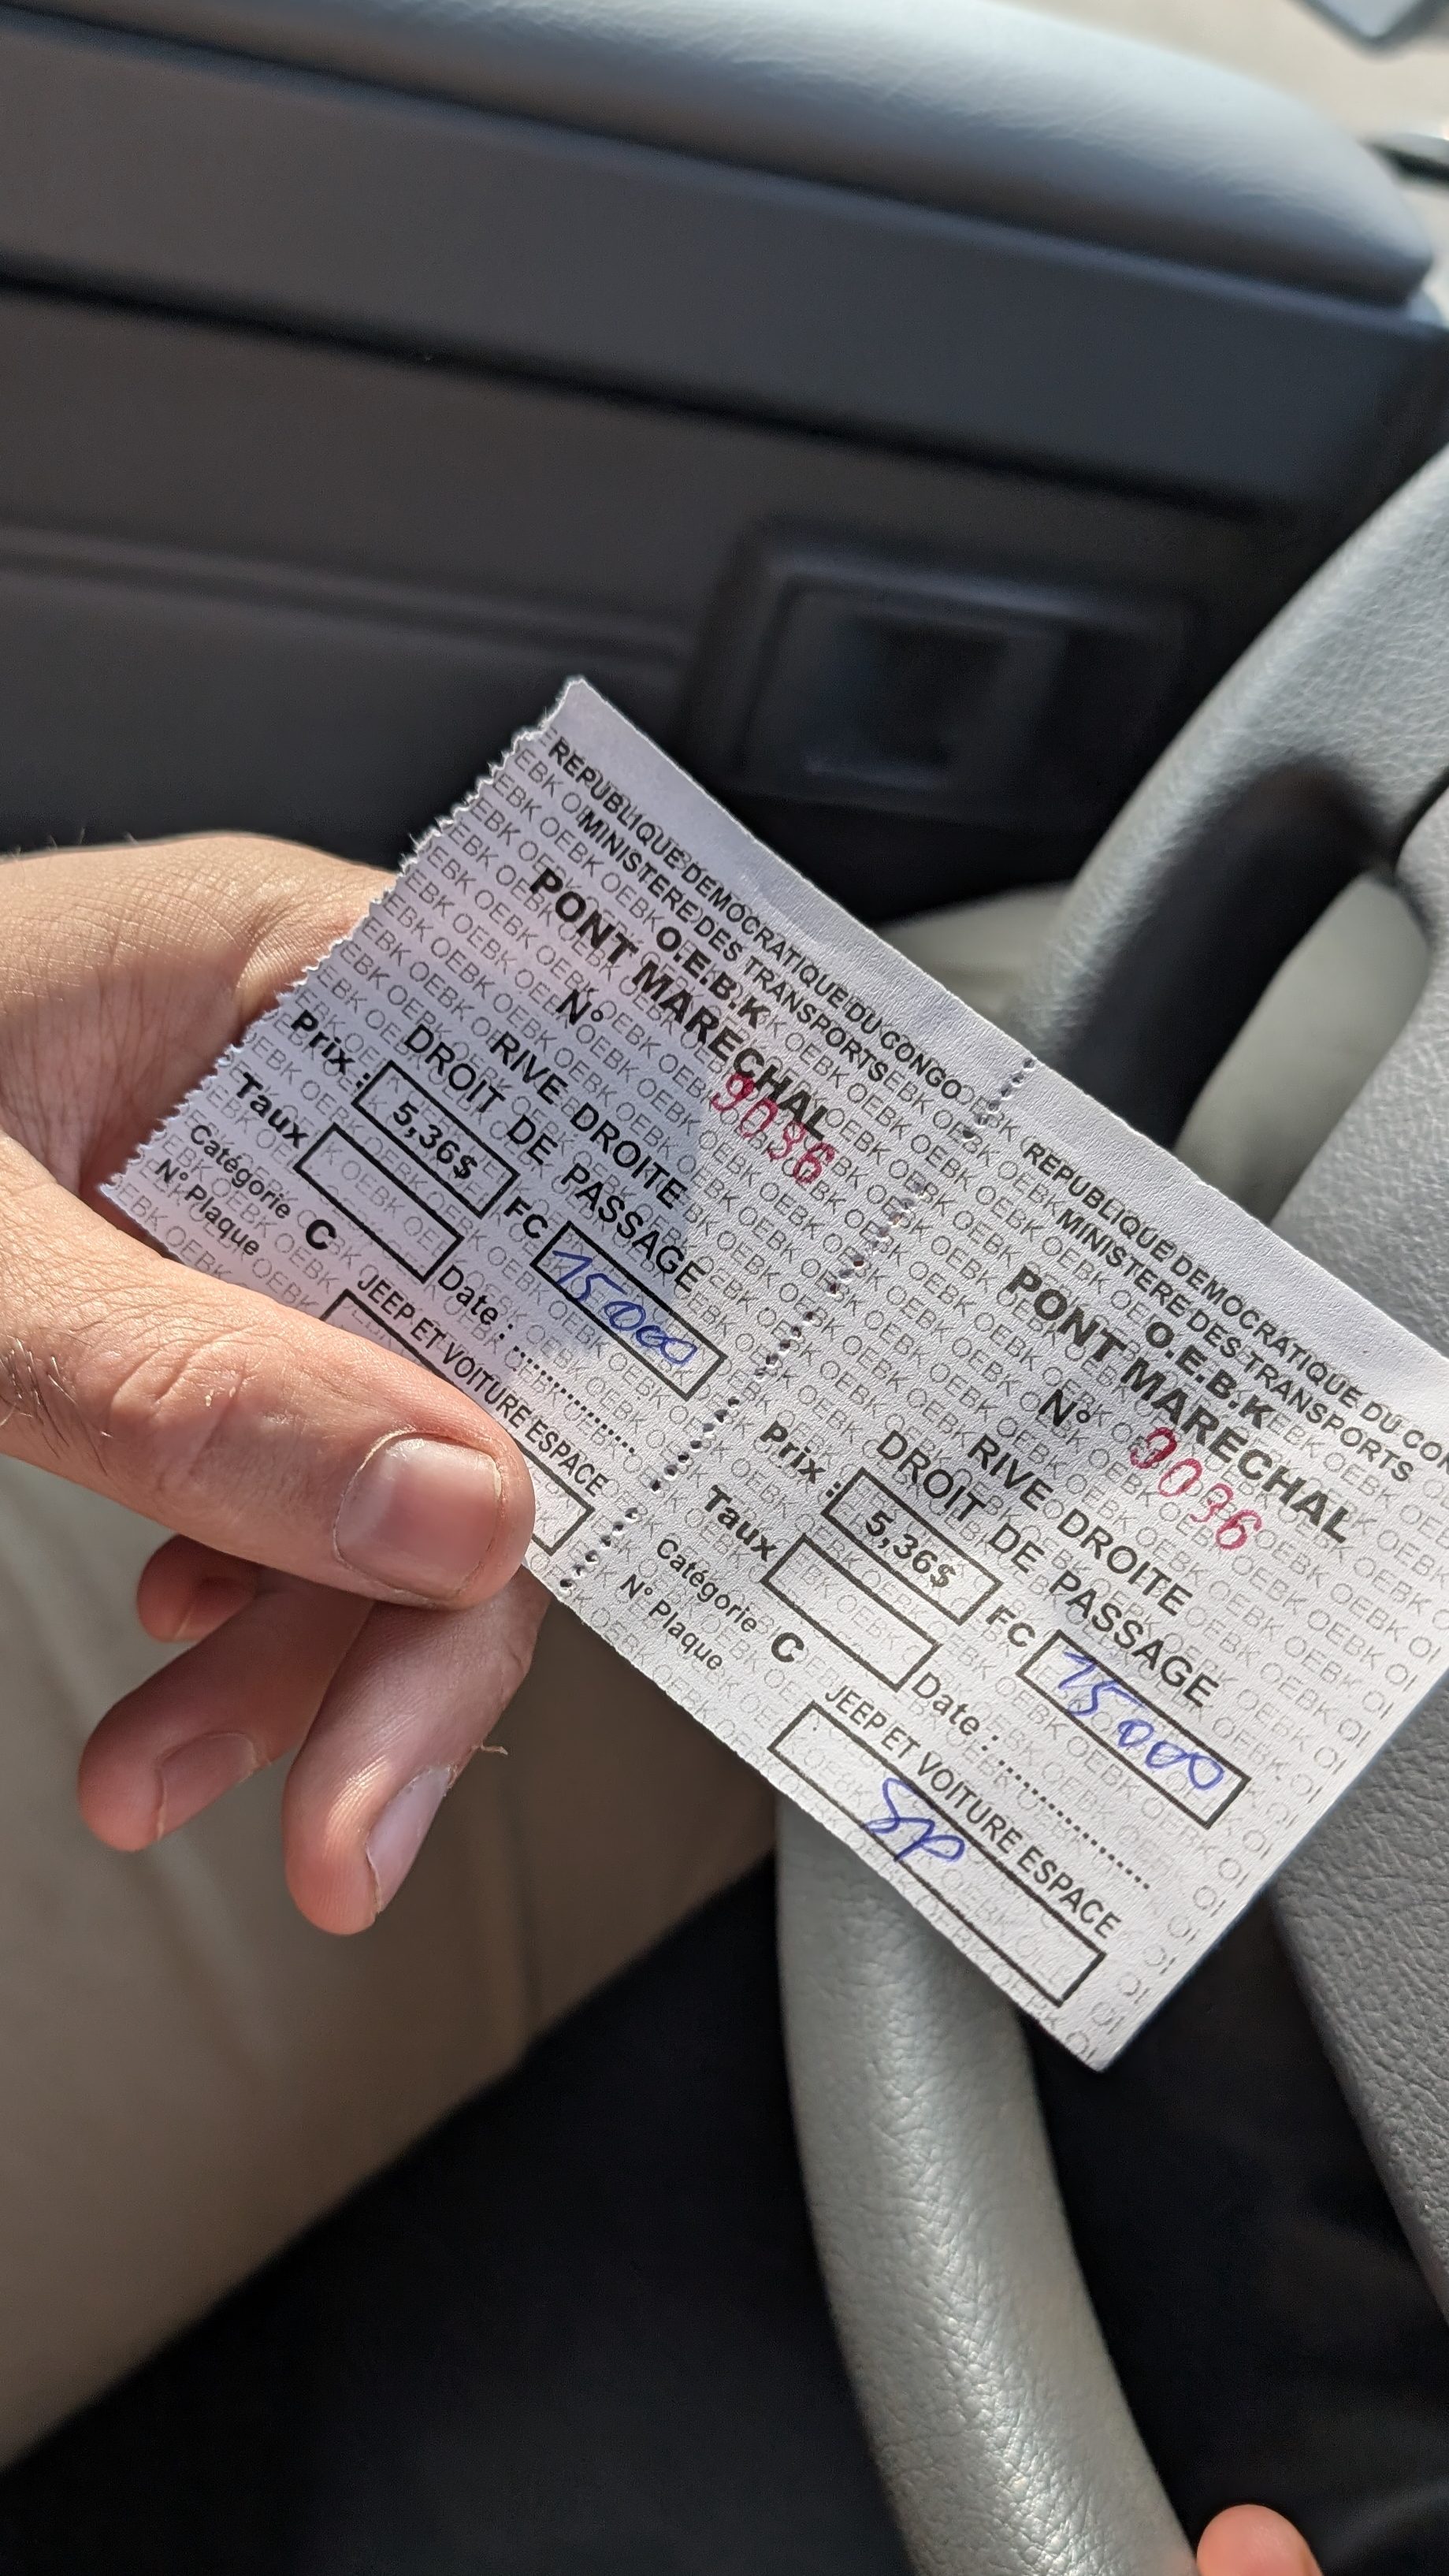 REPUBLIQUE DEMOCRATIQUE DU CONGO
MINISTERE DES TRANSPORTS
O.E.B.K
PONT MARECHAL
N° 9036
RIVE DROITE
DROIT DE PASSAGE
Prix : 5,36$ FC 15000
Taux Date :
Catégorie C JEEP ET VOITURE ESPACE
N° Plaque
REPUBLIQUE DEMOCRATIQUE DU CON
MINISTERE DES TRANSPORTS
O.E.B.K
PONT MARECHAL
N° 9036
RIVE DROITE
DROIT DE PASSAGE
Prix : 5,36$ FC 15000
Taux Date :
Catégorie C JEEP ET VOITURE ESPACE
N° Plaque SP